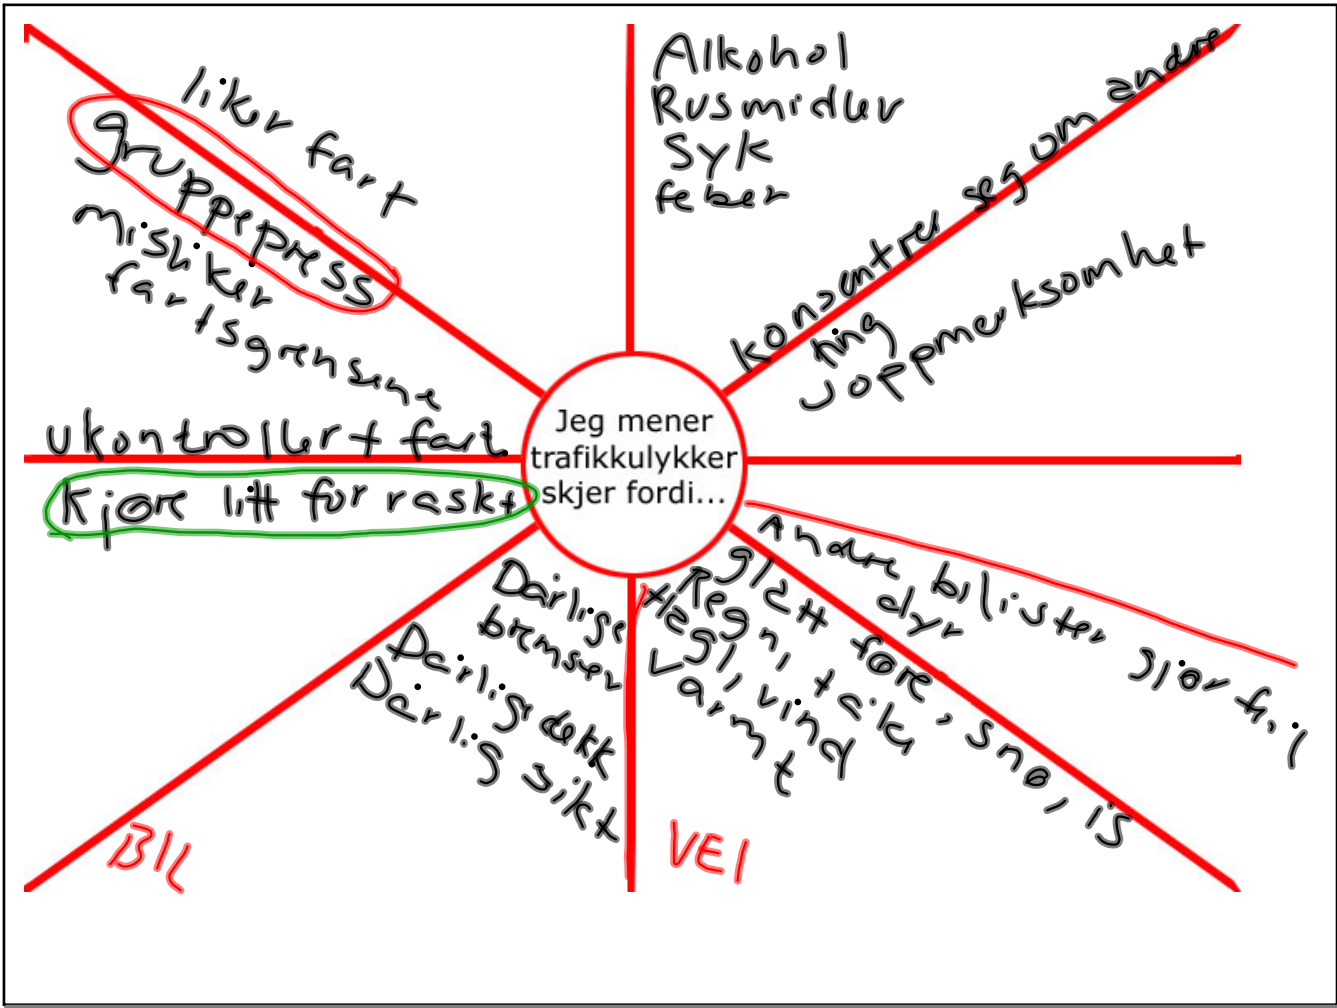 liker fart
gruppepress
misliker
fartsgrensene
ukontrollert fart.
kjøre litt for raskt
Alkohol
Rusmidler
Syk
feber
konsentrer seg om andre
ting
uoppmerksomhet
Jeg mener
trafikkulykker
skjer fordi...
Andre bilister gjør feil
dyr
glatt føre, snø, is
Regn, tåke
Hegl, vind
Varmt
VEI
Dårlige
bremser
Dårlige dekk
Dårlig sikt
BIL